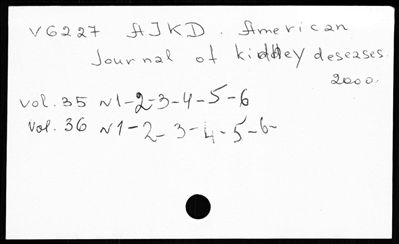 V6227 AJKD. American
Journal of kidney deseases.
2000.
vol. 35 N1-2-3-4-5-6
vol. 36 N1-2-3-4-5-6-